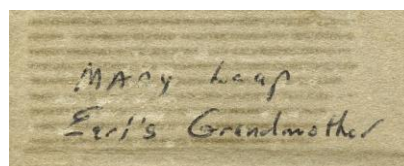 Mary Leap
Earl's Grandmother